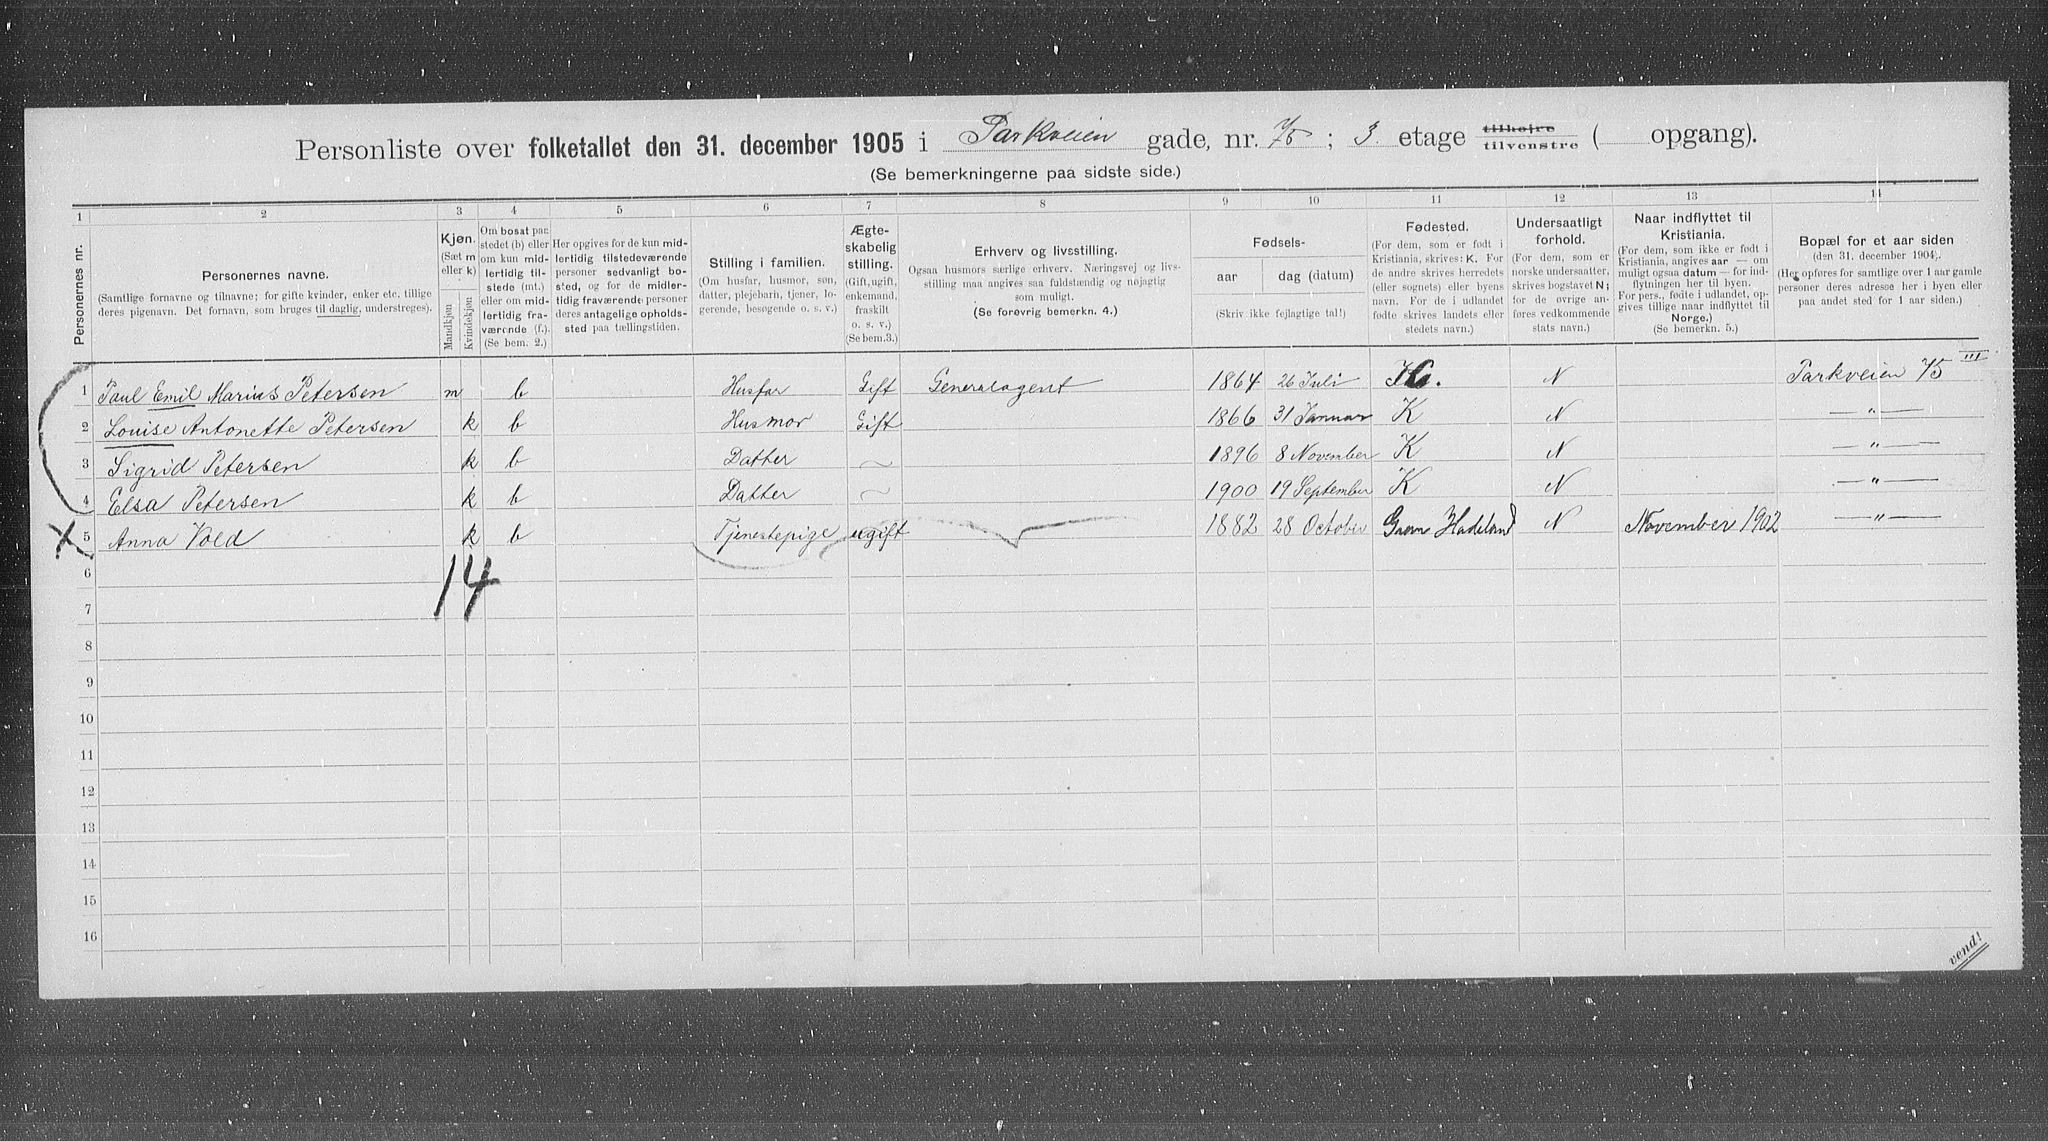 Personliste over folketallet den 31. december 1905 i Parkveien gade, nr. 75; 3. etage tilhøire tilvenstre ( opgang).
(Se bemerkningerne paa sidste side.)
1 2 3 4 5 6 7 8 9 10 11 12 13 14
Personernes nr.
Personernes navne.
(Samtlige fornavne og tilnavne; for gifte kvinder, enker etc. tillige deres pigenavn. Det fornavn, som bruges til daglig, understreges).
Kjøn.
(Sæt m eller k)
Mandkjøn
Kvindekjøn
Om bosat paa stedet (b) eller om kun midlertidig tilstede (mt.) eller om midlertidig fraværende (f.).
(Se bem. 2.)
Her opgives for de kun midlertidig tilstedeværende personer sedvanligt bosted, og for de midlertidig fraværende personer deres antagelige opholdssted paa tællingstiden.
Stilling i familien.
(Om husfar, husmor, søn, datter, plejebarn, tjener, logerende, besøgende o. s. v.)
Ægteskabelig stilling.
(Gift, ugift, enkemand, fraskilt o. s. v.)
(Se bem. 3.)
Erhverv og livsstilling.
Ogsaa husmors særlige erhverv. Næringsvej og livsstilling maa angives saa fuldstændig og nøjagtig som muligt.
(Se forøvrig bemerkn. 4.)
Fødsels-
aar
dag (datum)
(Skriv ikke fejlagtige tal!)
Fødested.
(For dem, som er født i Kristiania, skrives: K. For de andre skrives herredets (eller sognets) eller byens navn. For de i udlandet fødte skrives landets eller stedets navn.)
Undersaatligt forhold.
(For dem, som er norske undersaatter, skrives bogstavet N; for de øvrige anføres vedkommende stats navn.)
Naar indflyttet til Kristiania.
(For dem, som ikke er født i Kristiania, angives aar — om muligt ogsaa datum — for indflytningen her til byen. For pers., fødte i udlandet, opgives tillige naar indflyttet til Norge.)
(Se bemerkn. 5.)
Bopæl for et aar siden
(den 31. december 1904).
(Her opføres for samtlige over 1 aar gamle personer deres adresse her i byen eller paa andet sted for 1 aar siden.)
1 Paul Emil Marius Petersen m b Husfar Gift Generalagent 1864 26 Juli K. N Parkveien 75 III
2 Louise Antonette Petersen k b Husmor Gift 1866 31 Januar K N — " —
3 Sigrid Petersen k b Datter ~ 1896 8 November K N — " —
4 Elsa Petersen k b Datter ~ 1900 19 September K N — " —
5 Anna Vold k b Tjenestepige ugift 1882 28 October Gran Hadeland N November 1902 — " —
6
14
7
8
9
10
11
12
13
14
15
16
vend!